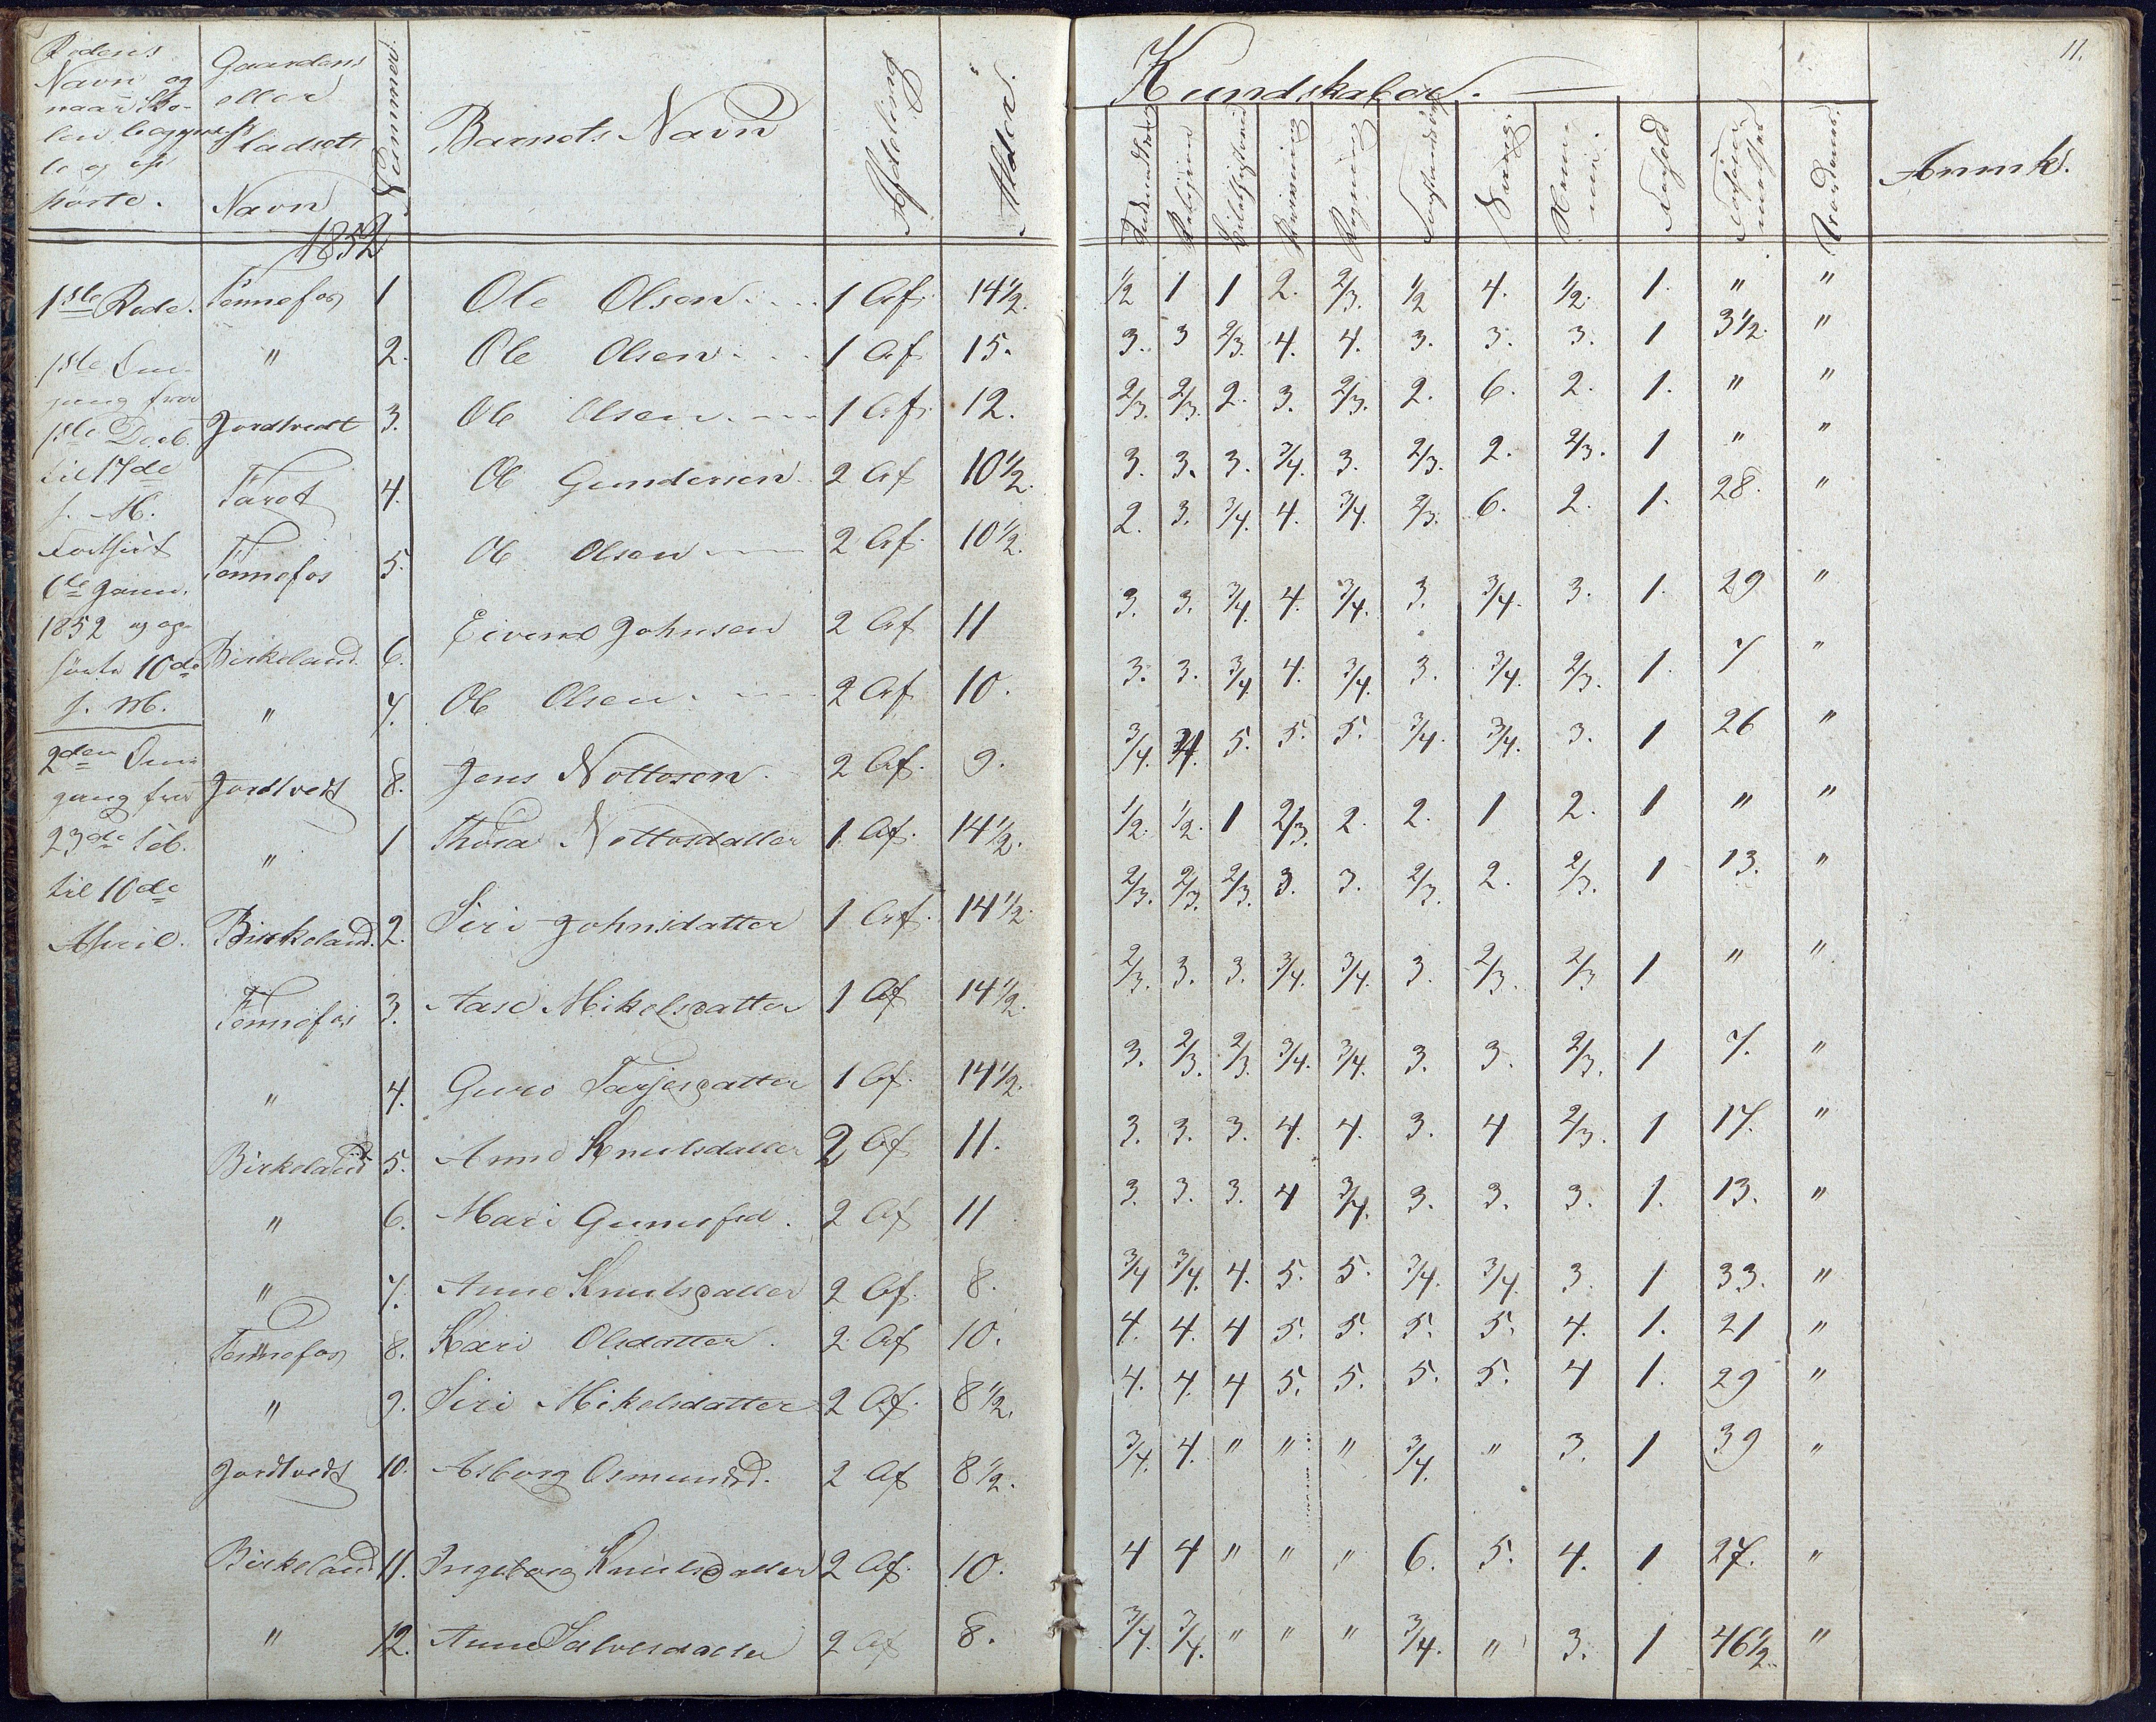 Rodens Navn og naar Skolen begyndte og ophørte.
Gaardens eller Pladsets Navn
Nummer
Barnets Navn
Afdeling
Alder.
Kundskaber.
11.
Religion
Skrivning
Regning
Sang.
Anmk.
1852
1ste Rode.
1ste Omgang fra
1ste Decb.
til 17de
s. M.
Fortsat
6te Janu.
1852 og op-
hørte 10de
s. M.
2den Om-
gang fra
23de Feb.
til 10de
April.
Tennefos 1 Ole Olsen 1 Af. 14 1/2. 1/2 1 1 2. 2/3. 1/2 4. 1/2. 1. " "
" 2. Ole Olsen 1 Af. 15. 3. 3 2/3. 4. 4. 3. 3. 3. 1 3 1/2. "
Jordtvedt 3. Ole Olsen 1 Af. 12. 2/3. 2/3. 2. 3. 2/3. 2. 6. 2. 1. " "
Taret 4. Ole Gundersen 2 Af 10 1/2. 3. 3. 3. 3/4. 3. 2/3. 2. 2/3. 1 " "
Tennefos 5. Ole Olsen 2 Af. 10 1/2. 2. 3. 3/4. 4. 3/4. 2/3. 6. 2. 1. 28. "
Birkeland 6. Eivend Johnsen 2 Af 11 3. 3. 3/4. 4. 3/4. 3. 3/4. 3. 1. 29 "
" 7. Ole Olsen 2 Af 10. 3. 3. 3/4 4. 3/4. 3. 3/4. 2/3. 1. 7 "
Jordtvedt 8. Jens Nottosen 2 Af. 9. 3/4. 3/4. 5. 5. 5. 3/4. 3/4. 3. 1 26 "
" 1 Thora Nottosdatter 1 Af. 14 1/2. 1/2. 1/2. 1 2/3. 2. 2. 1 2. 1 " "
Birkeland. 2. Siri Johnsdatter 1 Af. 14 1/2. 2/3. 2/3. 2/3. 3. 3. 2/3. 2. 2/3. 1 13. "
Tennefos 3. Aase Mikelsdatter 1 Af 14 1/2. 2/3. 3. 3. 3/4. 3/4. 3. 2/3. 2/3 1 " "
" 4. Guro Tarjesdatter 1 Af. 14 1/2. 3. 2/3. 2/3. 3/4. 3/4. 3. 3. 2/3. 1 7. "
Birkeland 5. Anne Knutsdatter 2 Af 11. 3. 3. 3. 4. 4. 3. 4 2/3. 1 17. "
" 6. Mari Gunufsd. 2 Af 11 3. 3. 3. 4 3/4. 3. 3. 3. 1. 13. "
" 7. Anne Knutsdatter 2 Af. 8. 3/4 3/4. 4. 5. 5. 3/4. 3/4. 3. 1 33. "
Tennefos 8. Kari Olsdatter. 2 Af 10. 4. 4. 4 5. 5. 5. 5. 4. 1. 21 "
" 9. Siri Mikelsdatter 2 Af. 8 1/2. 4. 4. 4 5. 5. 5. 5. 4 1. 29 "
Jordtvedt 10. Asborg Osmundsd. 2 Af 8 1/2. 3/4. 4. " " " 3/4. " 3. 1 39 "
Birkeland 11. Ingeborg Knutsdatter 2 Af. 10. 4 4 " " " 6. 5. 4. 1 27. "
" 12. Anne Salvesdatter 2 Af 8. 3/4. 3/4. " " " 3/4. " 3. 1 46 1/2. "